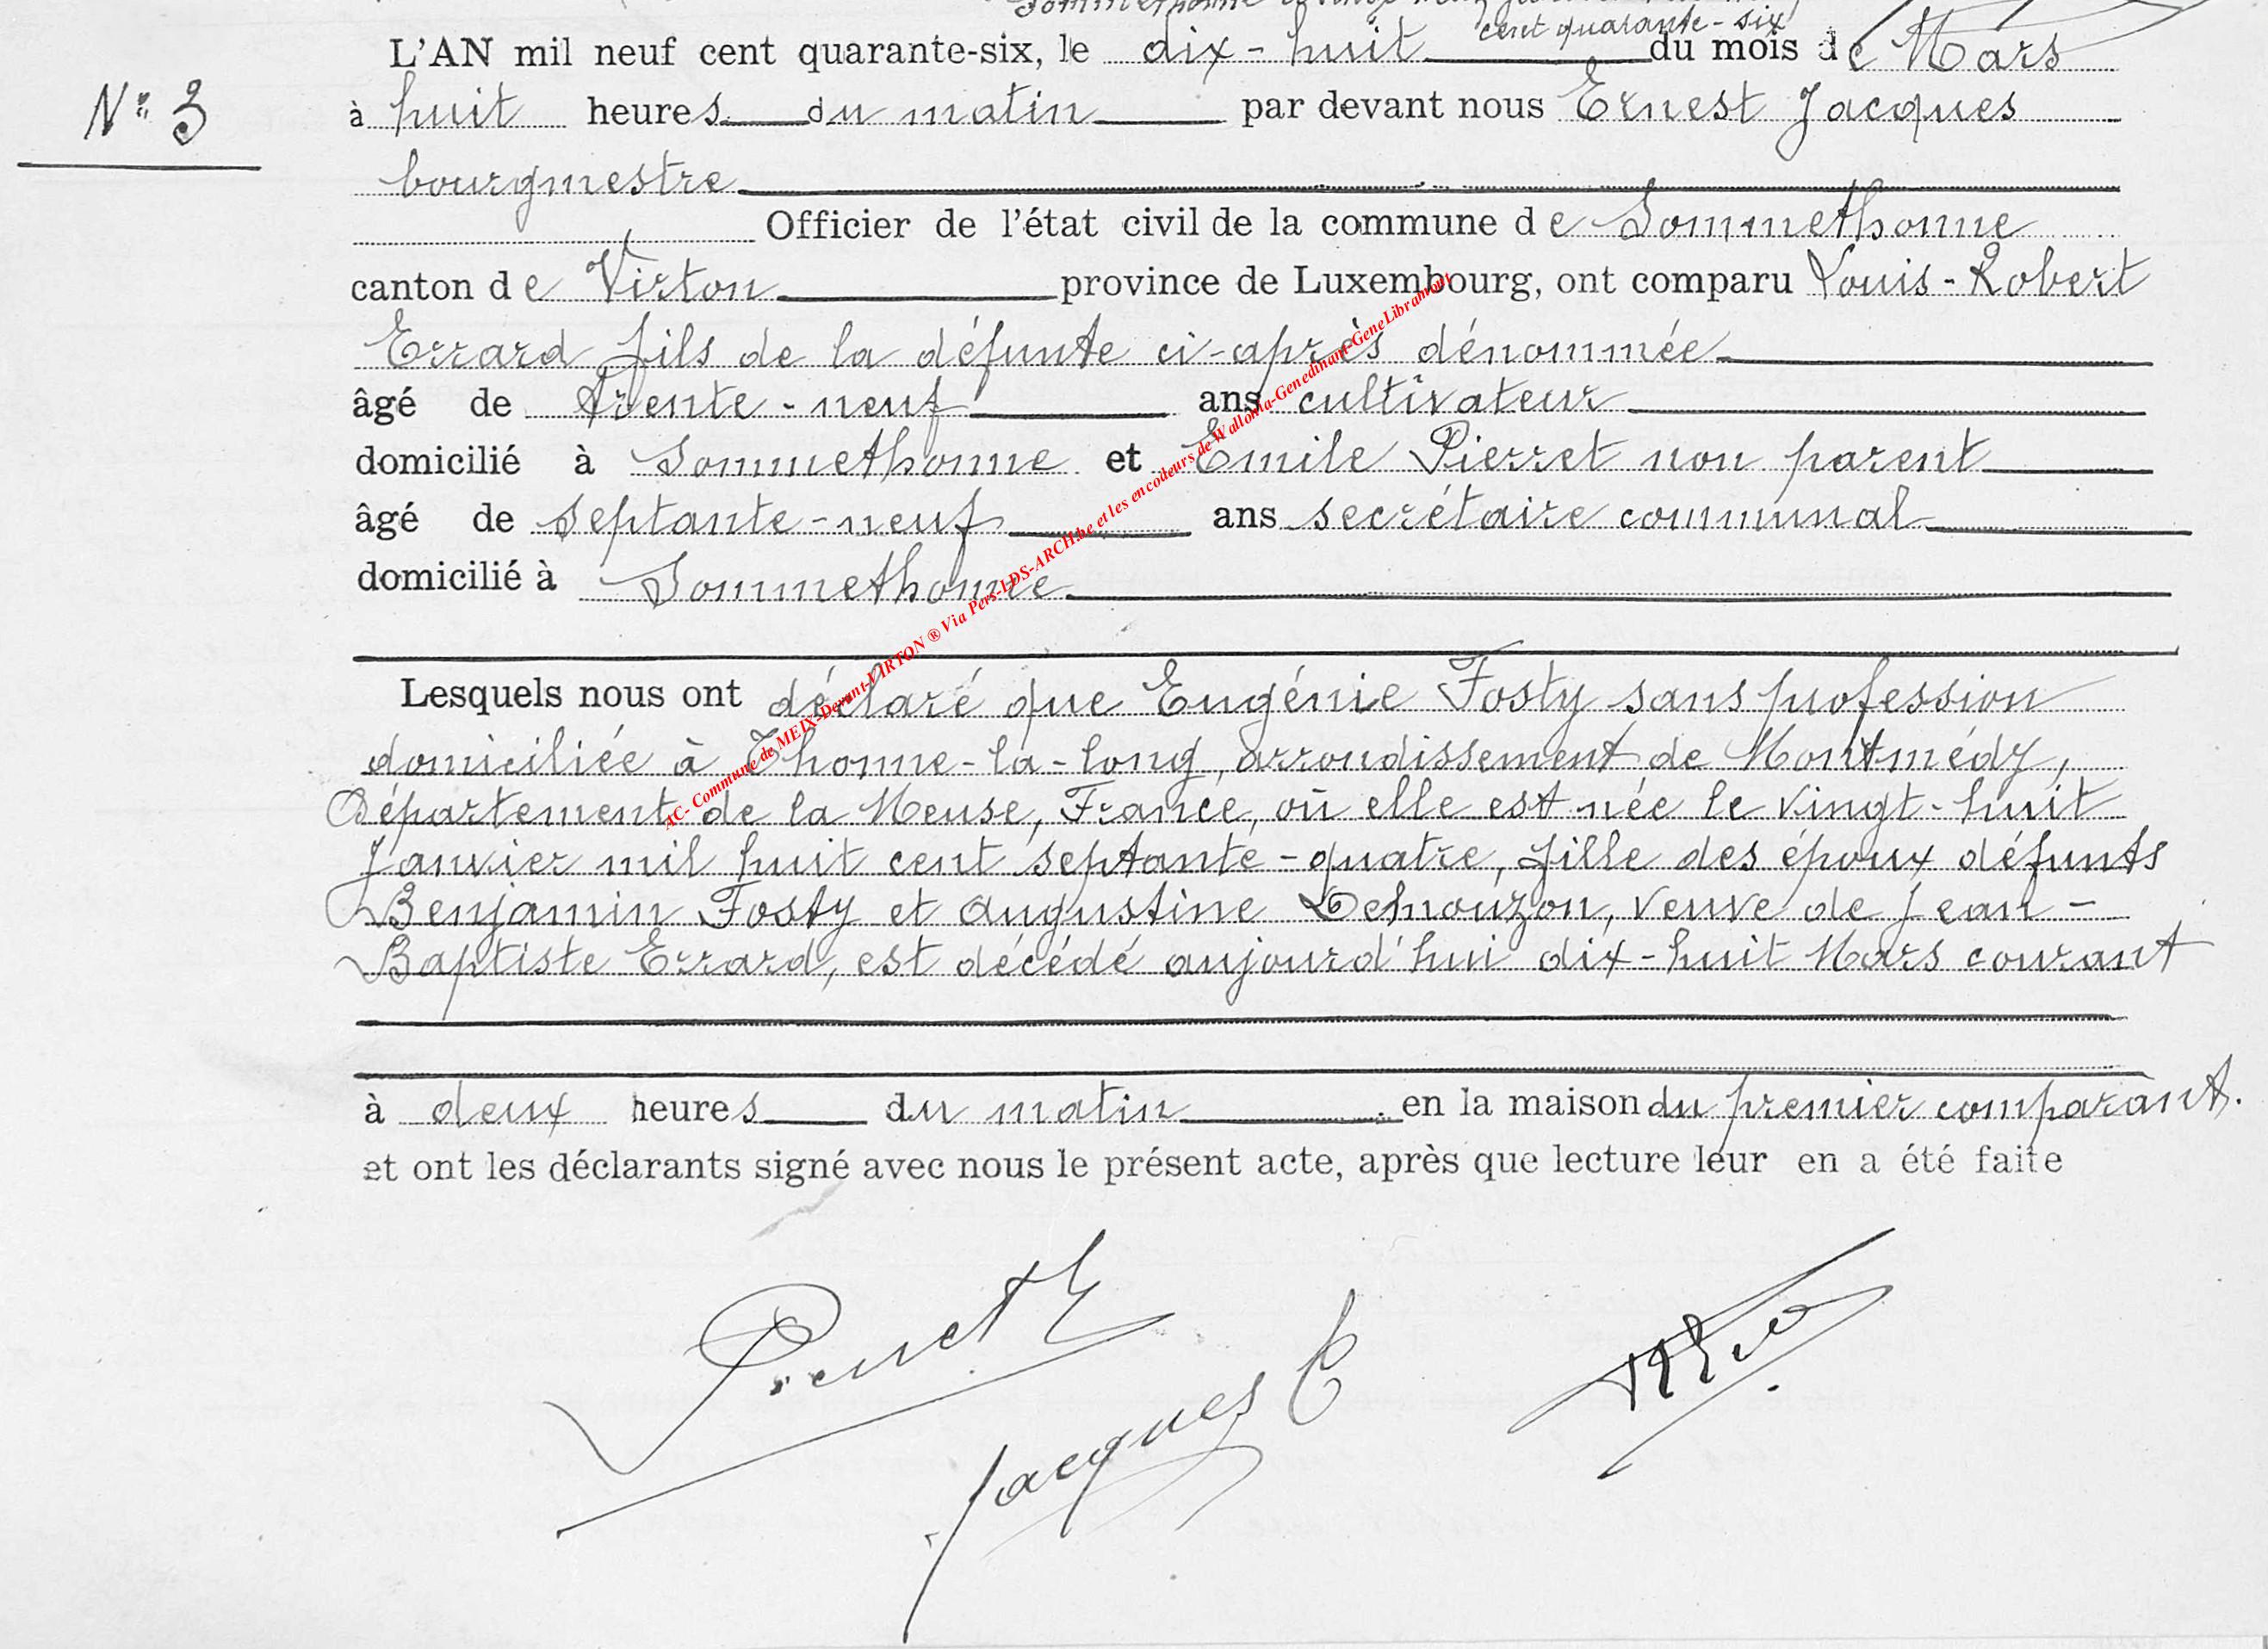 cent quarante-six
L'AN mil neuf cent quarante-six, le dix-huit du mois de Mars
N° 3
à huit heures du matin par devant nous Ernest Jacques
bourgmestre
Officier de l'état civil de la commune de Sommethonne
canton de Virton province de Luxembourg, ont comparu Louis-Robert
Errard fils de la défunte ci-après dénommée
âgé de trente-neuf ans cultivateur
domicilié à Sommethonne et Emile Pierret non parent
âgé de septante-neuf ans secrétaire communal
domicilié à Sommethonne
Lesquels nous ont déclaré que Eugénie Fosty sans profession
domiciliée à Thonne-la-long, arrondissement de Montmédy,
Département de la Meuse, France, où elle est née le vingt-huit
Janvier mil huit cent septante-quatre, fille des époux défunts
Benjamin Fosty et Augustine Dehouzon, veuve de Jean-
Baptiste Errard, est décédé aujourd'hui dix-huit Mars courant
à deux heures du matin en la maison du premier comparant.
et ont les déclarants signé avec nous le présent acte, après que lecture leur en a été faite
Jacques E
AC- Commune de MEIX-Devant-VIRTON ® Via Pers-LDS-ARCH.be et les encodeurs de Wallonia-Genedinant-GeneLibramont